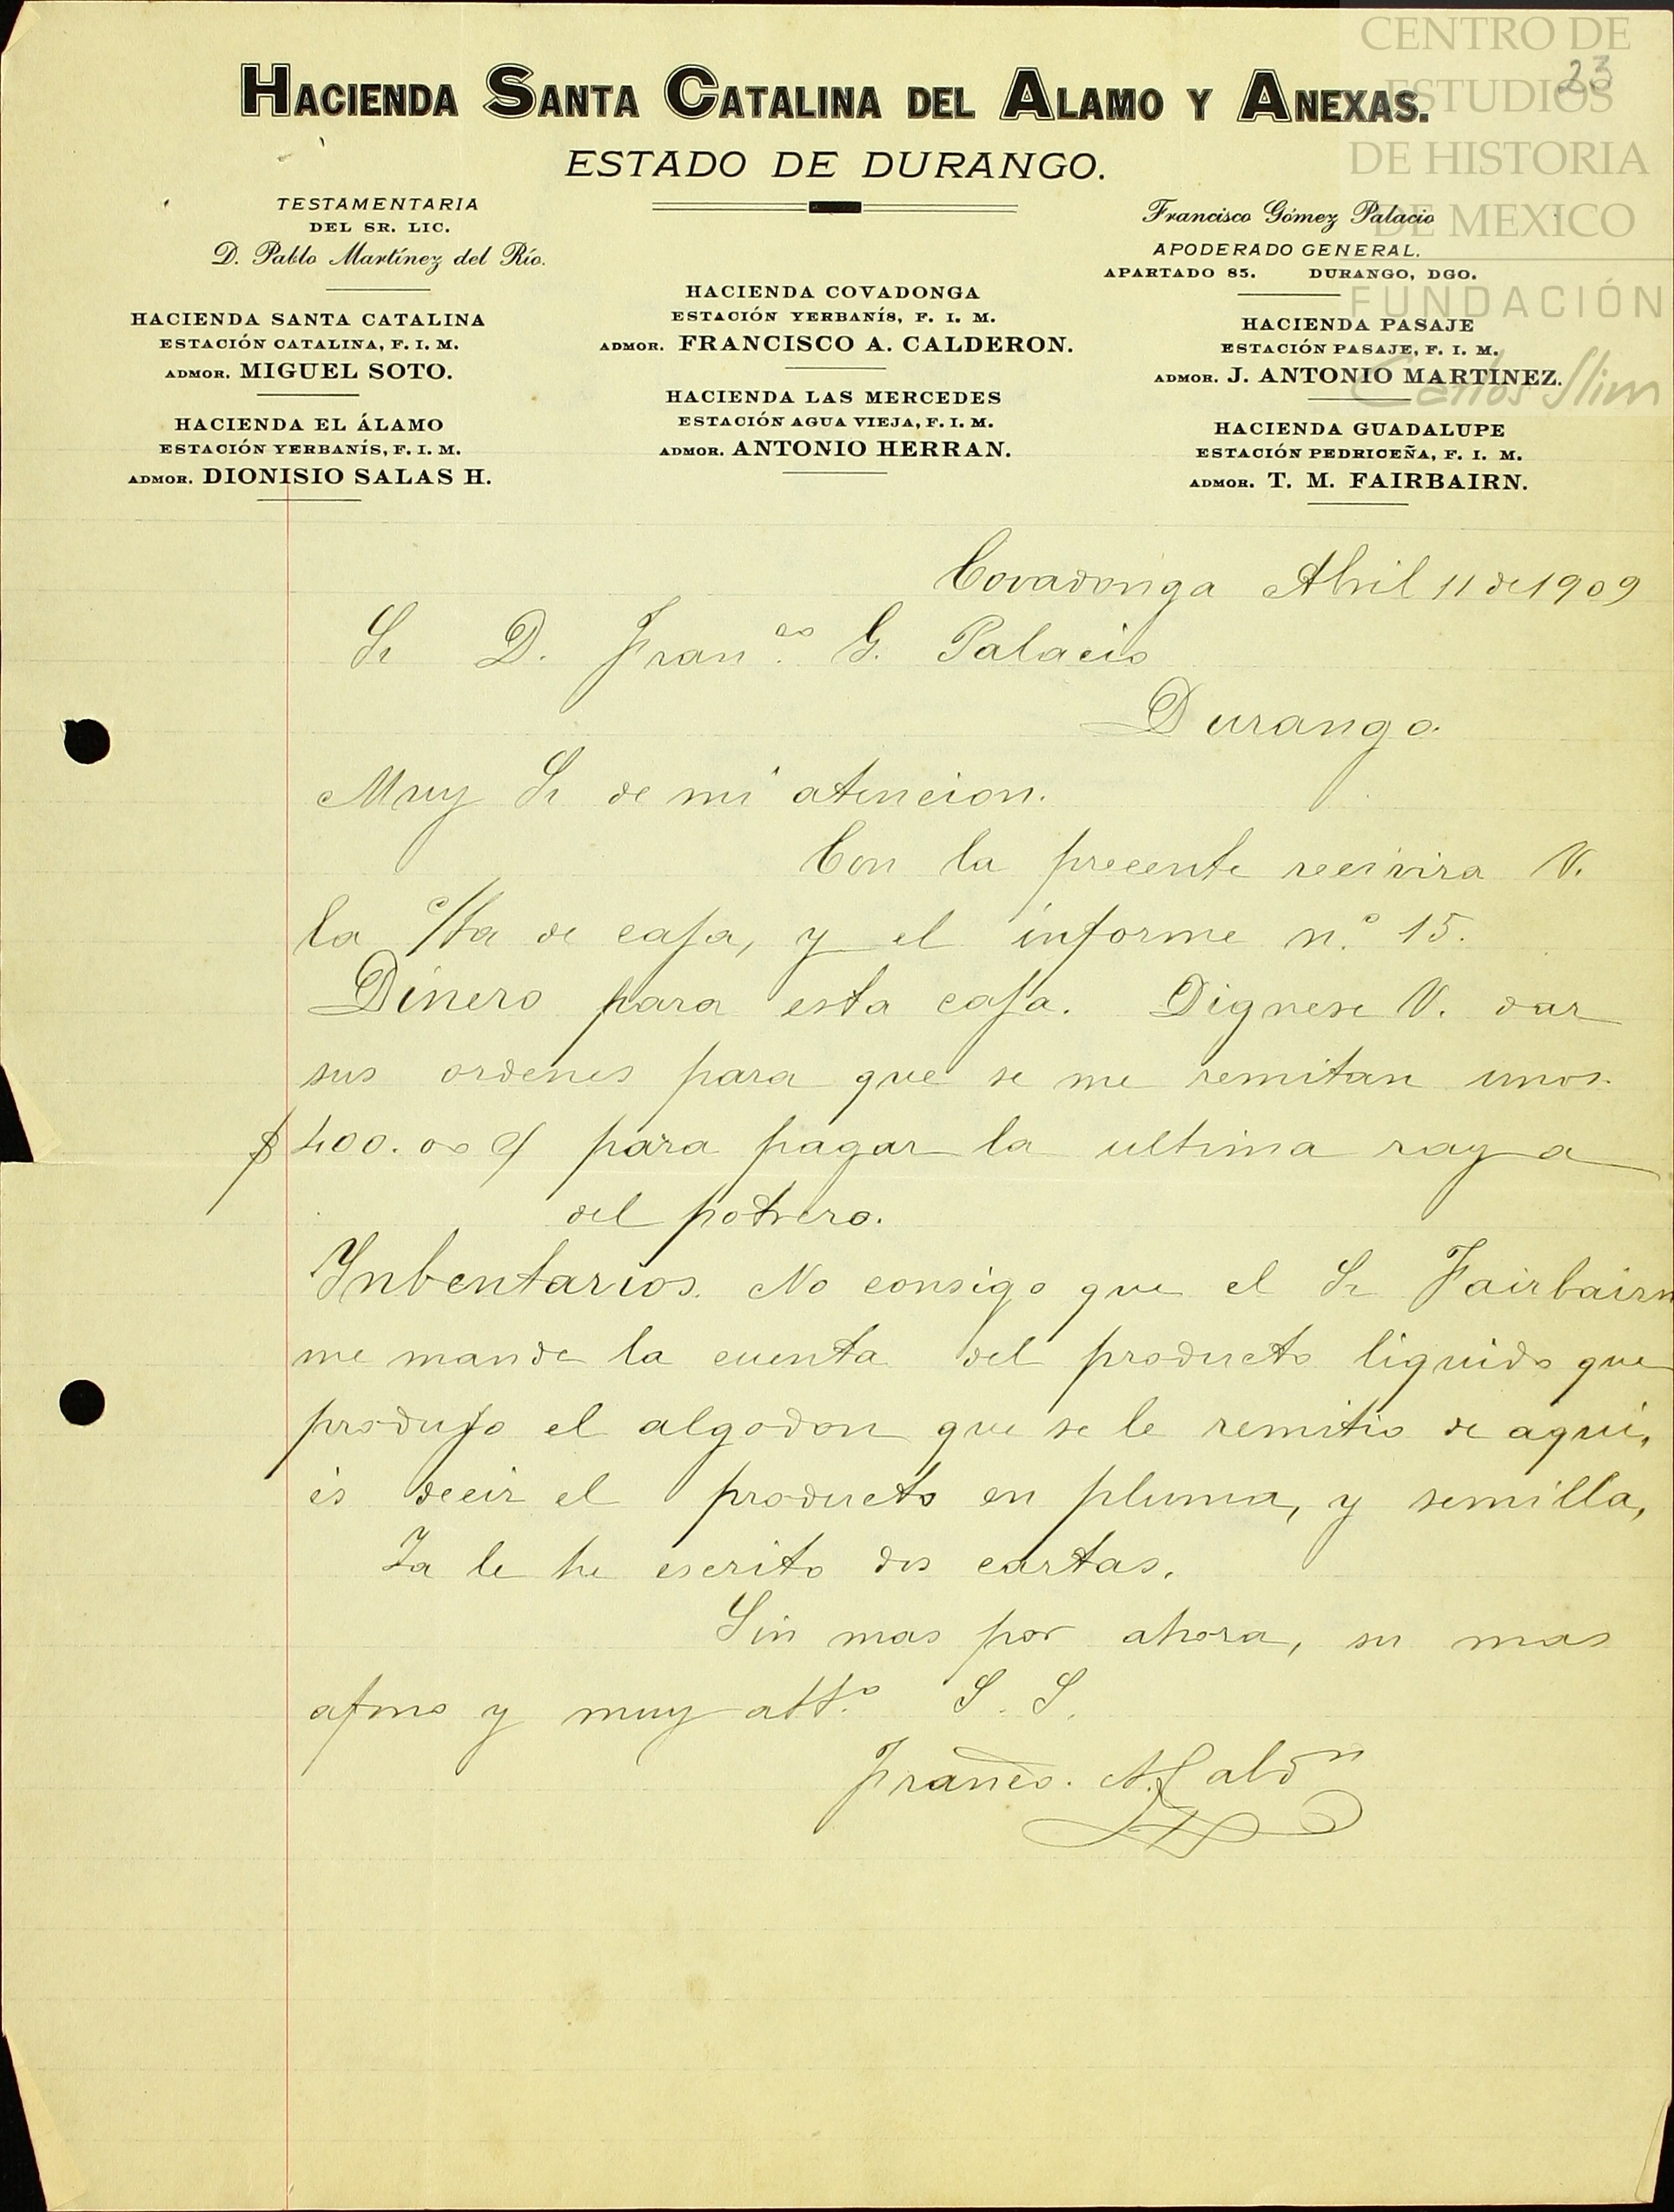 CENTRO DE
ESTUDIOS
DE HISTORIA
DE MEXICO
FUNDACIÓN
Carlos Slim
23
HACIENDA SANTA CATALINA DEL ALAMO Y ANEXAS.
ESTADO DE DURANGO.
TESTAMENTARIA
DEL SR. LIC.
D. Pablo Martínez del Río.
HACIENDA SANTA CATALINA
ESTACIÓN CATALINA, F. I. M.
ADMOR. MIGUEL SOTO.
HACIENDA EL ÁLAMO
ESTACIÓN YERBANÍS, F. I. M.
ADMOR. DIONISIO SALAS H.
HACIENDA COVADONGA
ESTACIÓN YERBANÍS, F. I. M.
ADMOR. FRANCISCO A. CALDERON.
HACIENDA LAS MERCEDES
ESTACIÓN AGUA VIEJA, F. I. M.
ADMOR. ANTONIO HERRAN.
Francisco Gómez Palacio
APODERADO GENERAL.
APARTADO 85. DURANGO, DGO.
HACIENDA PASAJE
ESTACIÓN PASAJE, F. I. M.
ADMOR. J. ANTONIO MARTINEZ.
HACIENDA GUADALUPE
ESTACIÓN PEDRICEÑA, F. I. M.
ADMOR. T. M. FAIRBAIRN.
Covadonga Abril 11 de 1909
Sr D. Fran.co G. Palacio
Durango.
Muy Sr de mi atencion.
Con la precente recivira V.
la c/ta de caja, y el informe n.º 15.
Dinero para esta caja. Dignese V. dar
sus ordenes para que se me remitan unos
$400.00 para pagar la ultima raya
del potrero.
Ynbentarios. No consigo que el Sr Fairbairn
me mande la cuenta del producto liquido que
produjo el algodon que se le remitio de aqui,
és decir el producto en pluma, y semilla,
Ya le he escrito dos cartas.
Sin mas por ahora, su mas
afmo y muy att.º S. S.
Franco. A. Caldn